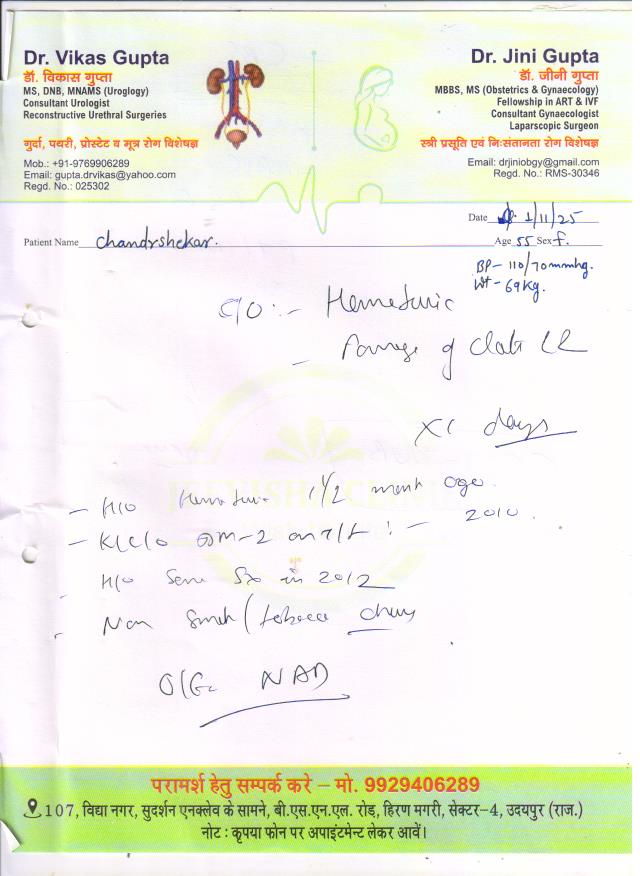 Dr. Vikas Gupta
डॉ. विकास गुप्ता
MS, DNB, MNAMS (Uroglogy)
Consultant Urologist
Reconstructive Urethral Surgeries
गुर्दा, पथरी, प्रोस्टेट व मूत्र रोग विशेषज्ञ
Mob.: +91-9769906289
Email: gupta.drvikas@yahoo.com
Regd. No.: 025302
Dr. Jini Gupta
डॉ. जीनी गुप्ता
MBBS, MS (Obstetrics & Gynaecology)
Fellowship in ART & IVF
Consultant Gynaecologist
Laparscopic Surgeon
स्त्री प्रसूति एवं निःसंतानता रोग विशेषज्ञ
Email: drjiniobgy@gmail.com
Regd. No.: RMS-30346
Date 1/11/25
Patient Name Chandrshekar.
Age 55 Sex f.
BP- 110/70mmhg.
Wt- 69kg.
C/O :-
of
days
- H/O 1 1/2 month ago.
- K/C/O DM-2 on - 2010.
- H/O in 2012
- Non
O/E- NAD
परामर्श हेतु सम्पर्क करे – मो. 9929406289
107, विद्या नगर, सुदर्शन एनक्लेव के सामने, बी.एस.एन.एल. रोड़, हिरण मगरी, सेक्टर-4, उदयपुर (राज.)
नोट : कृपया फोन पर अपाइंटमेन्ट लेकर आवें।